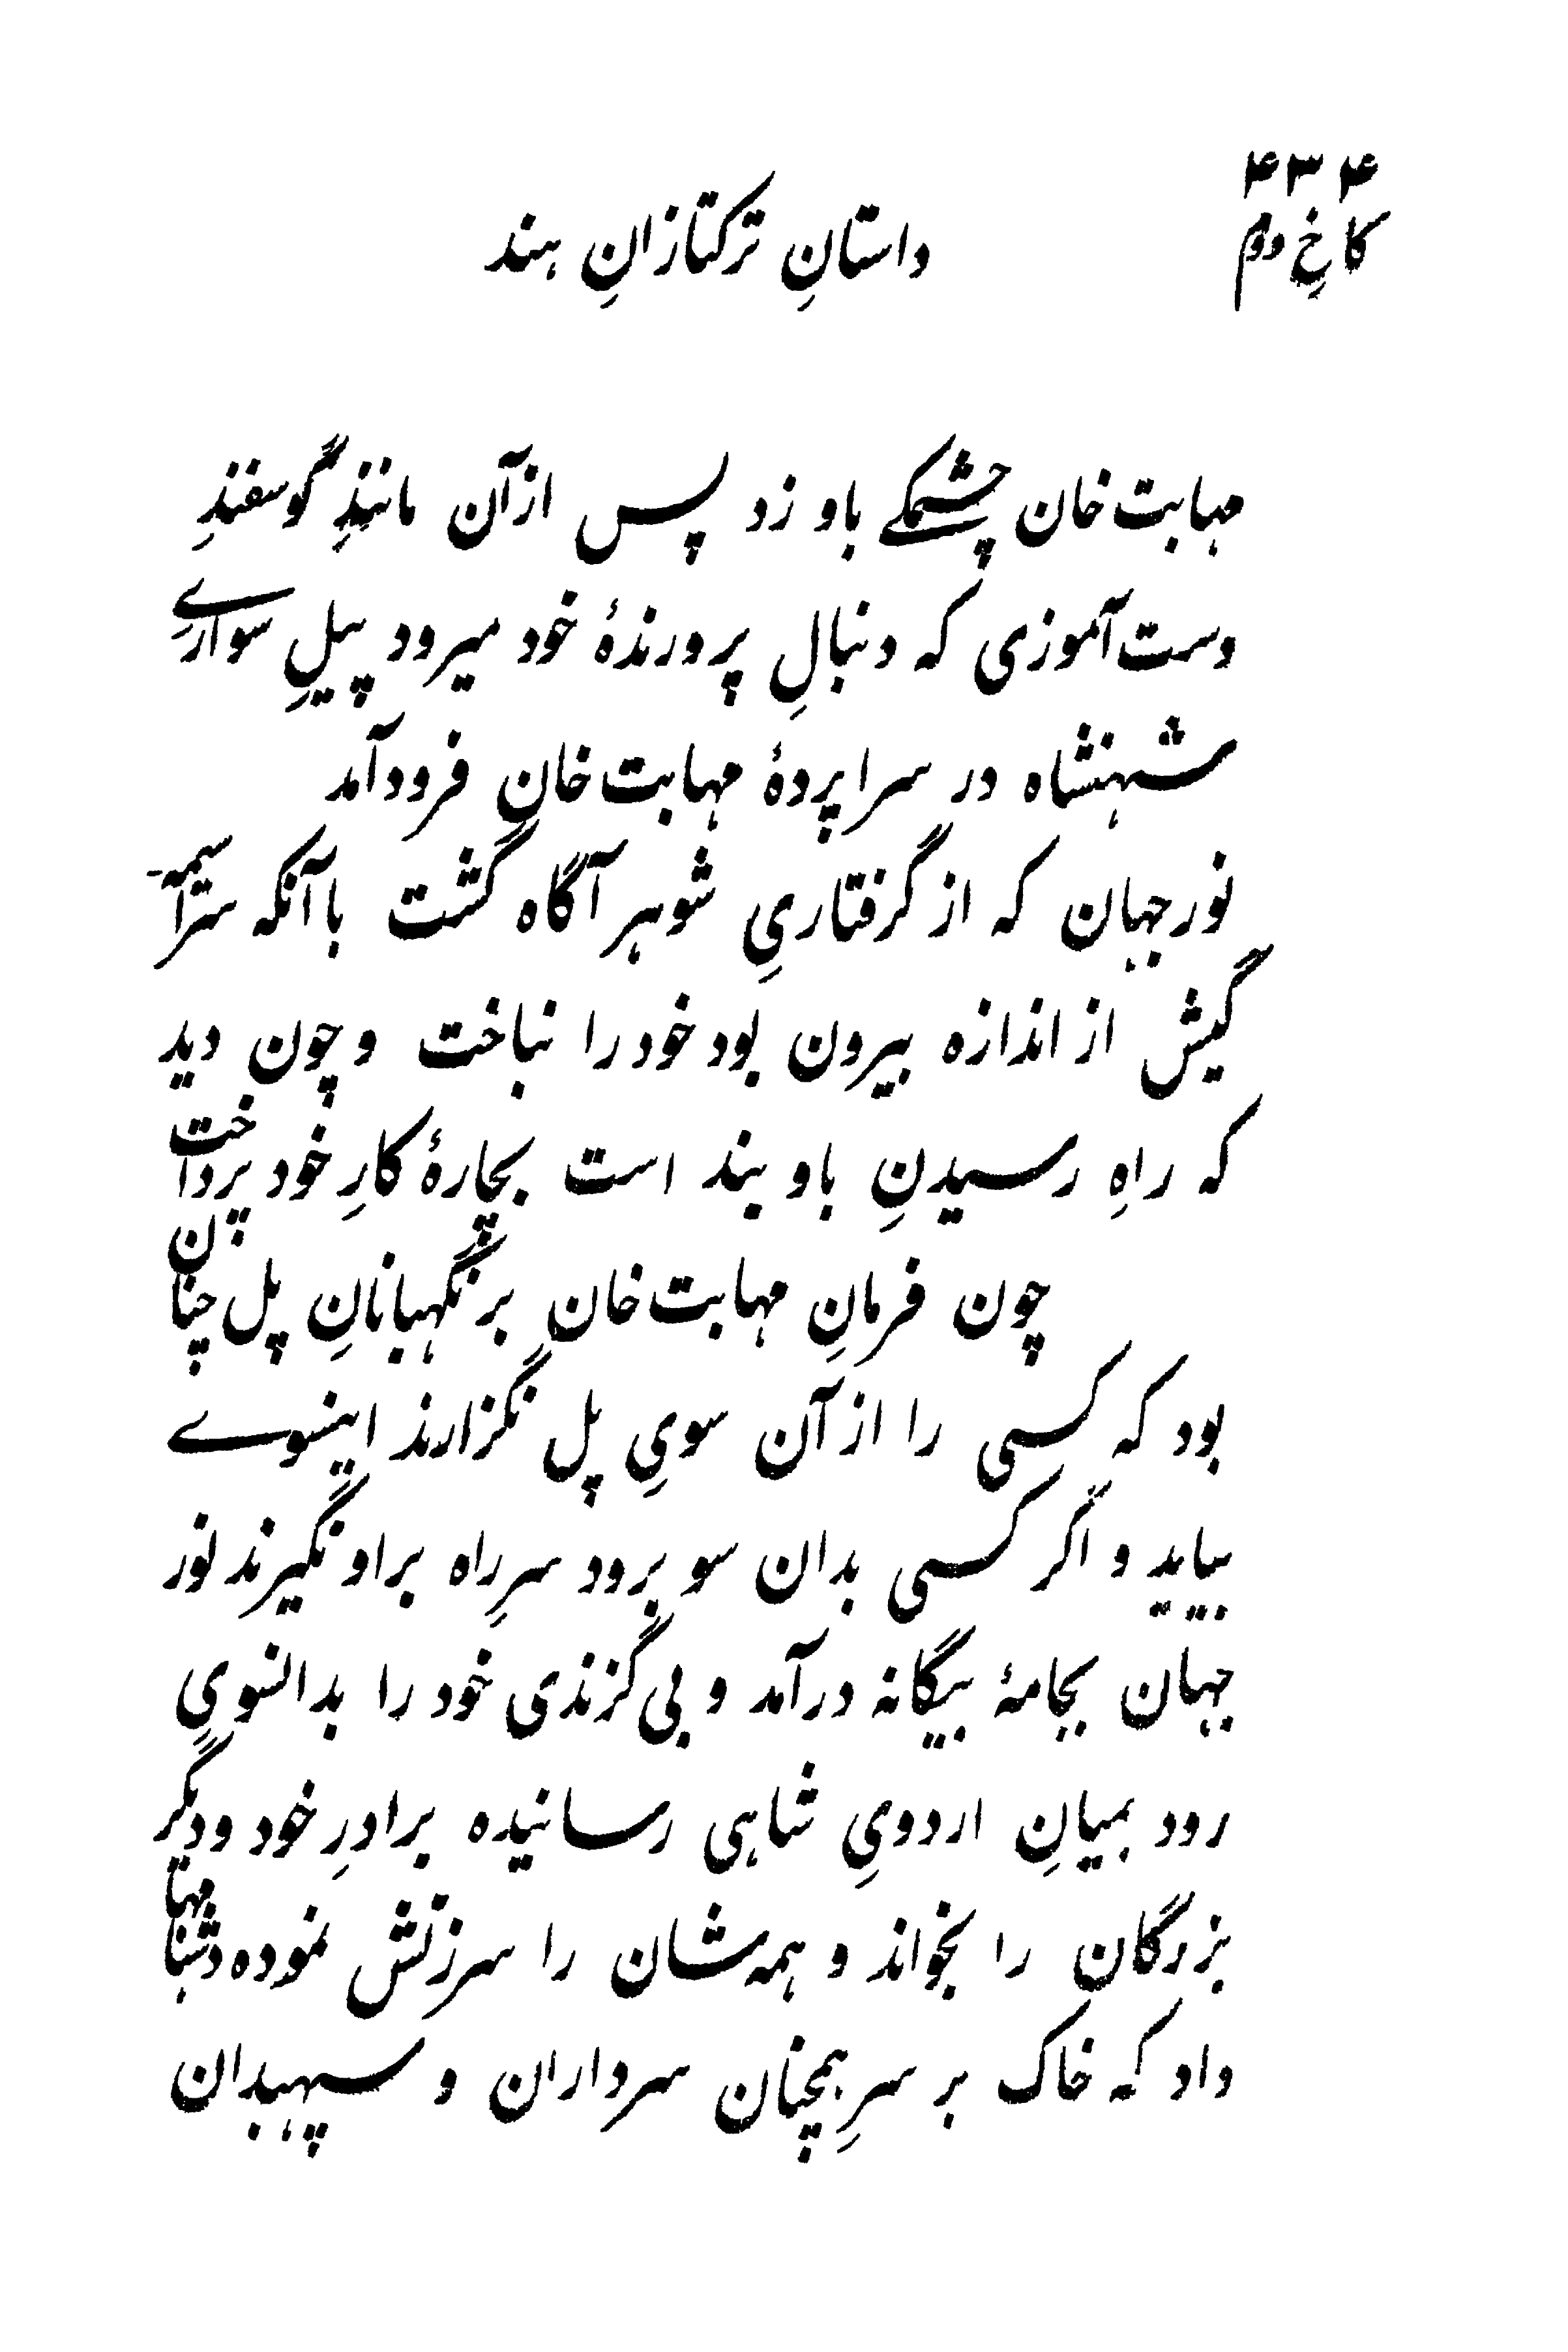 ۴۳۴
کاخِ دوم
داستانِ ترکتازانِ هند
مهابت خان چشمکے باو زد پس ازآن مانندِ گوسفندِ
دست‌آموزی که دنبالِ پرورندهٔ خود میرود پیلِ سوارے
شهنشاه در سراپردهٔ مهابت خان فرودآمد
نورجهان که از گرفتاریِ شوهر آگاه گشت باآنکه سراسیمه
گیش از اندازه بیرون بود خود را نباخت و چون دید
که راهِ رسیدنِ باو بند است بچارهٔ کارِ خود پرداخت
چون فرمانِ مهابت خان بر نگهبانانِ پل چنان
بود که کسی را از آن سویِ پل نگزارند اینسوے
بیاید و اگر کسی بدان سو برود سرِ راه براو نگیرند نور
جهان بجامهٔ بیگانه درآمد و بی گزندی خود را بدانسویِ
رود بمیانِ اردویِ شاهی رسانیده برادرِ خود و دیگر
بزرگان را بخواند و همه‌شان را سرزنش نموده دشنامها
داد که خاک بر سرِ همچنان سرداران و سپهبدان